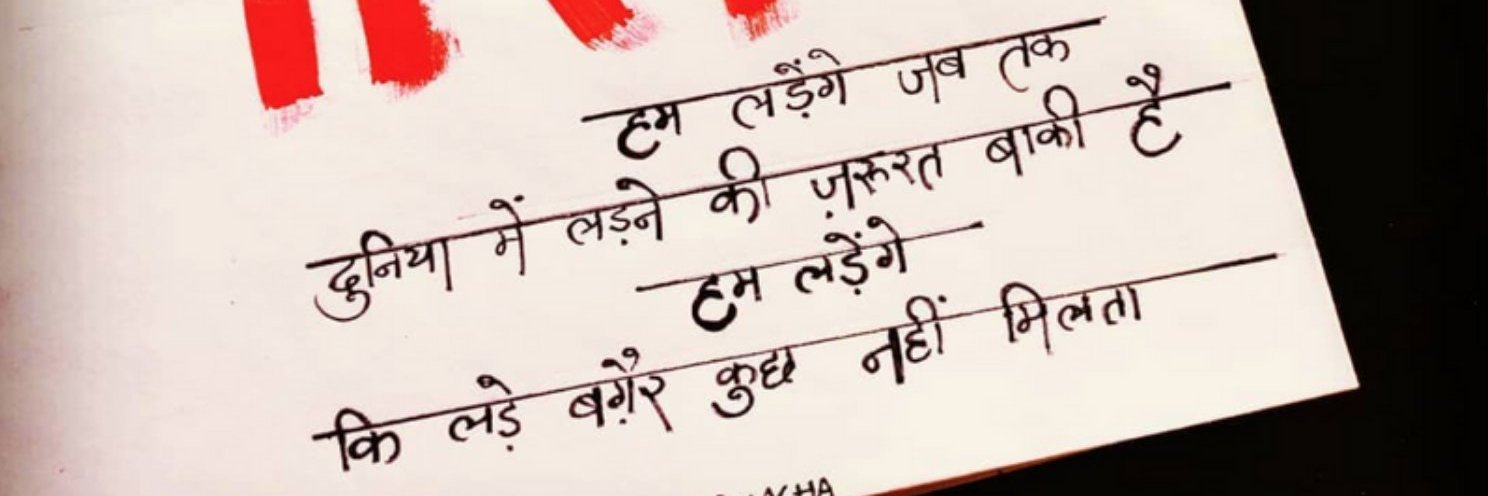 हम लड़ेंगे जब तक
दुनिया में लड़ने की ज़रूरत बाकी है
हम लड़ेंगे
कि लड़े बग़ैर कुछ नहीं मिलता